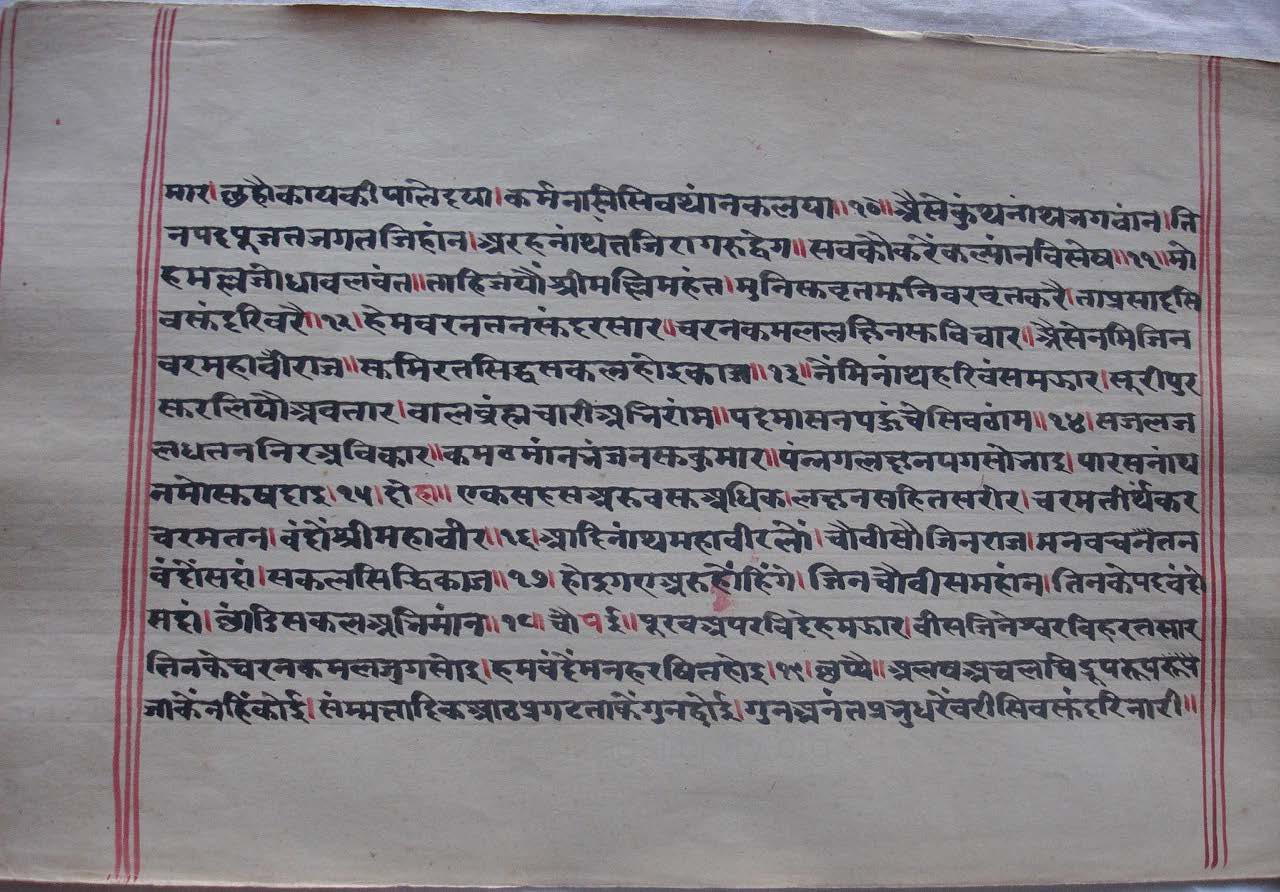 मार। छहौकायकी पालेदया। कर्मनासिसिवथांनकलया॥१०॥ अैसेकुंथनांथभगवांन। ति
नपदपूजतभगतजिहांन। अरहनांथतजिरागरुद्वेग॥ सवकौकरैंकल्यांनविसेष॥११॥ मो
हमल्लजोधावलवंत॥ ताहिजयौंश्रीमल्लिमहंत। मुनिसुवृतमुनिवरवृतकरै। ताप्रसादसि
वसुंदरिवरै॥१२। हेमवरनतनसुंदरसार। चरनकमललछिनसुविचार॥ अैसेनमिजिन
वरमहावीराज॥ सुमिरतसिद्धसकलहोइकाज॥१३॥ नेंमिनांथहरिवंसमझार। सूरीपुर
सुरलियौअवतार। वालव्रंह्मचारीअभिरांम॥ पदमासनपहुंचैसिवठांम॥१४। सजलज
लधतननिरअविकार॥ कमठमांनभंजनसुकुमार॥ पंन्नगलछनपगसोभाइ। पारसनांथ
नमोसुषदाइ।१५। दोहा॥ एकसहसअरुवसुअधिक। लछनसहितसरीर। चरमतीर्थंकर
चरमतन। वंदौंश्रीमहावीर॥१६। आदिनांथमहावीरलौं। चौवीसौजिनराज। मनवचनैंतन
वंदौंसदां। सकलसिद्धिकाज॥१७। होइगएअरुहौंहिंगे। जिनचौवीसमहांन। तिनकेपदवंदो
सदां। छांडिसकलअभिमांन॥१८॥ चौपई॥ पूरवअपरविदेहमझार। वीसजिनेश्वरविहरतसार
तिनकेचरनकमलजुगसोइ। हमवंदैंमनहरषितहोइ।१९। छप्पै॥ अलषअचलचिद्रूप
जाकैंनहिंकोई। संम्मत्तादिकआठप्रगटताकैंगुनहोई। गुनअनंतप्रभुधरेंवरीसिवसुंदरिनारी॥